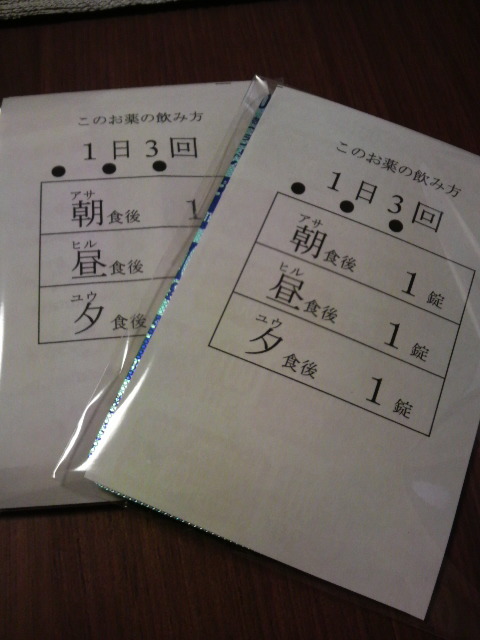 このお薬の飲み方
1日3回
アサ
朝食後 1
ヒル
昼食後
ユウ
夕食後
このお薬の飲み方
1日3回
アサ
朝食後 1錠
ヒル
昼食後 1錠
ユウ
夕食後 1錠